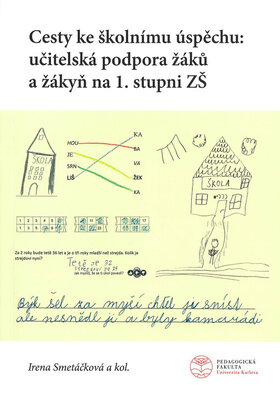 Cesty ke školnímu úspěchu:
učitelská podpora žáků
a žákyň na 1. stupni ZŠ
KA
HOU
BA
JE
VA
SRN
ŽEK
LIŠ
KA
ŠKOLA
ŠKOLA
Za 2 roky bude tetě 36 let a je o tři roky mladší než strejda. Kolik je
strejdovi nyní?
Tetě je 32
Býk šel za myší chtěl jo sníst
ale nesnědl ji a byly kamarádi
Irena Smetáčková a kol.
PEDAGOGICKÁ
FAKULTA
Univerzita Karlova